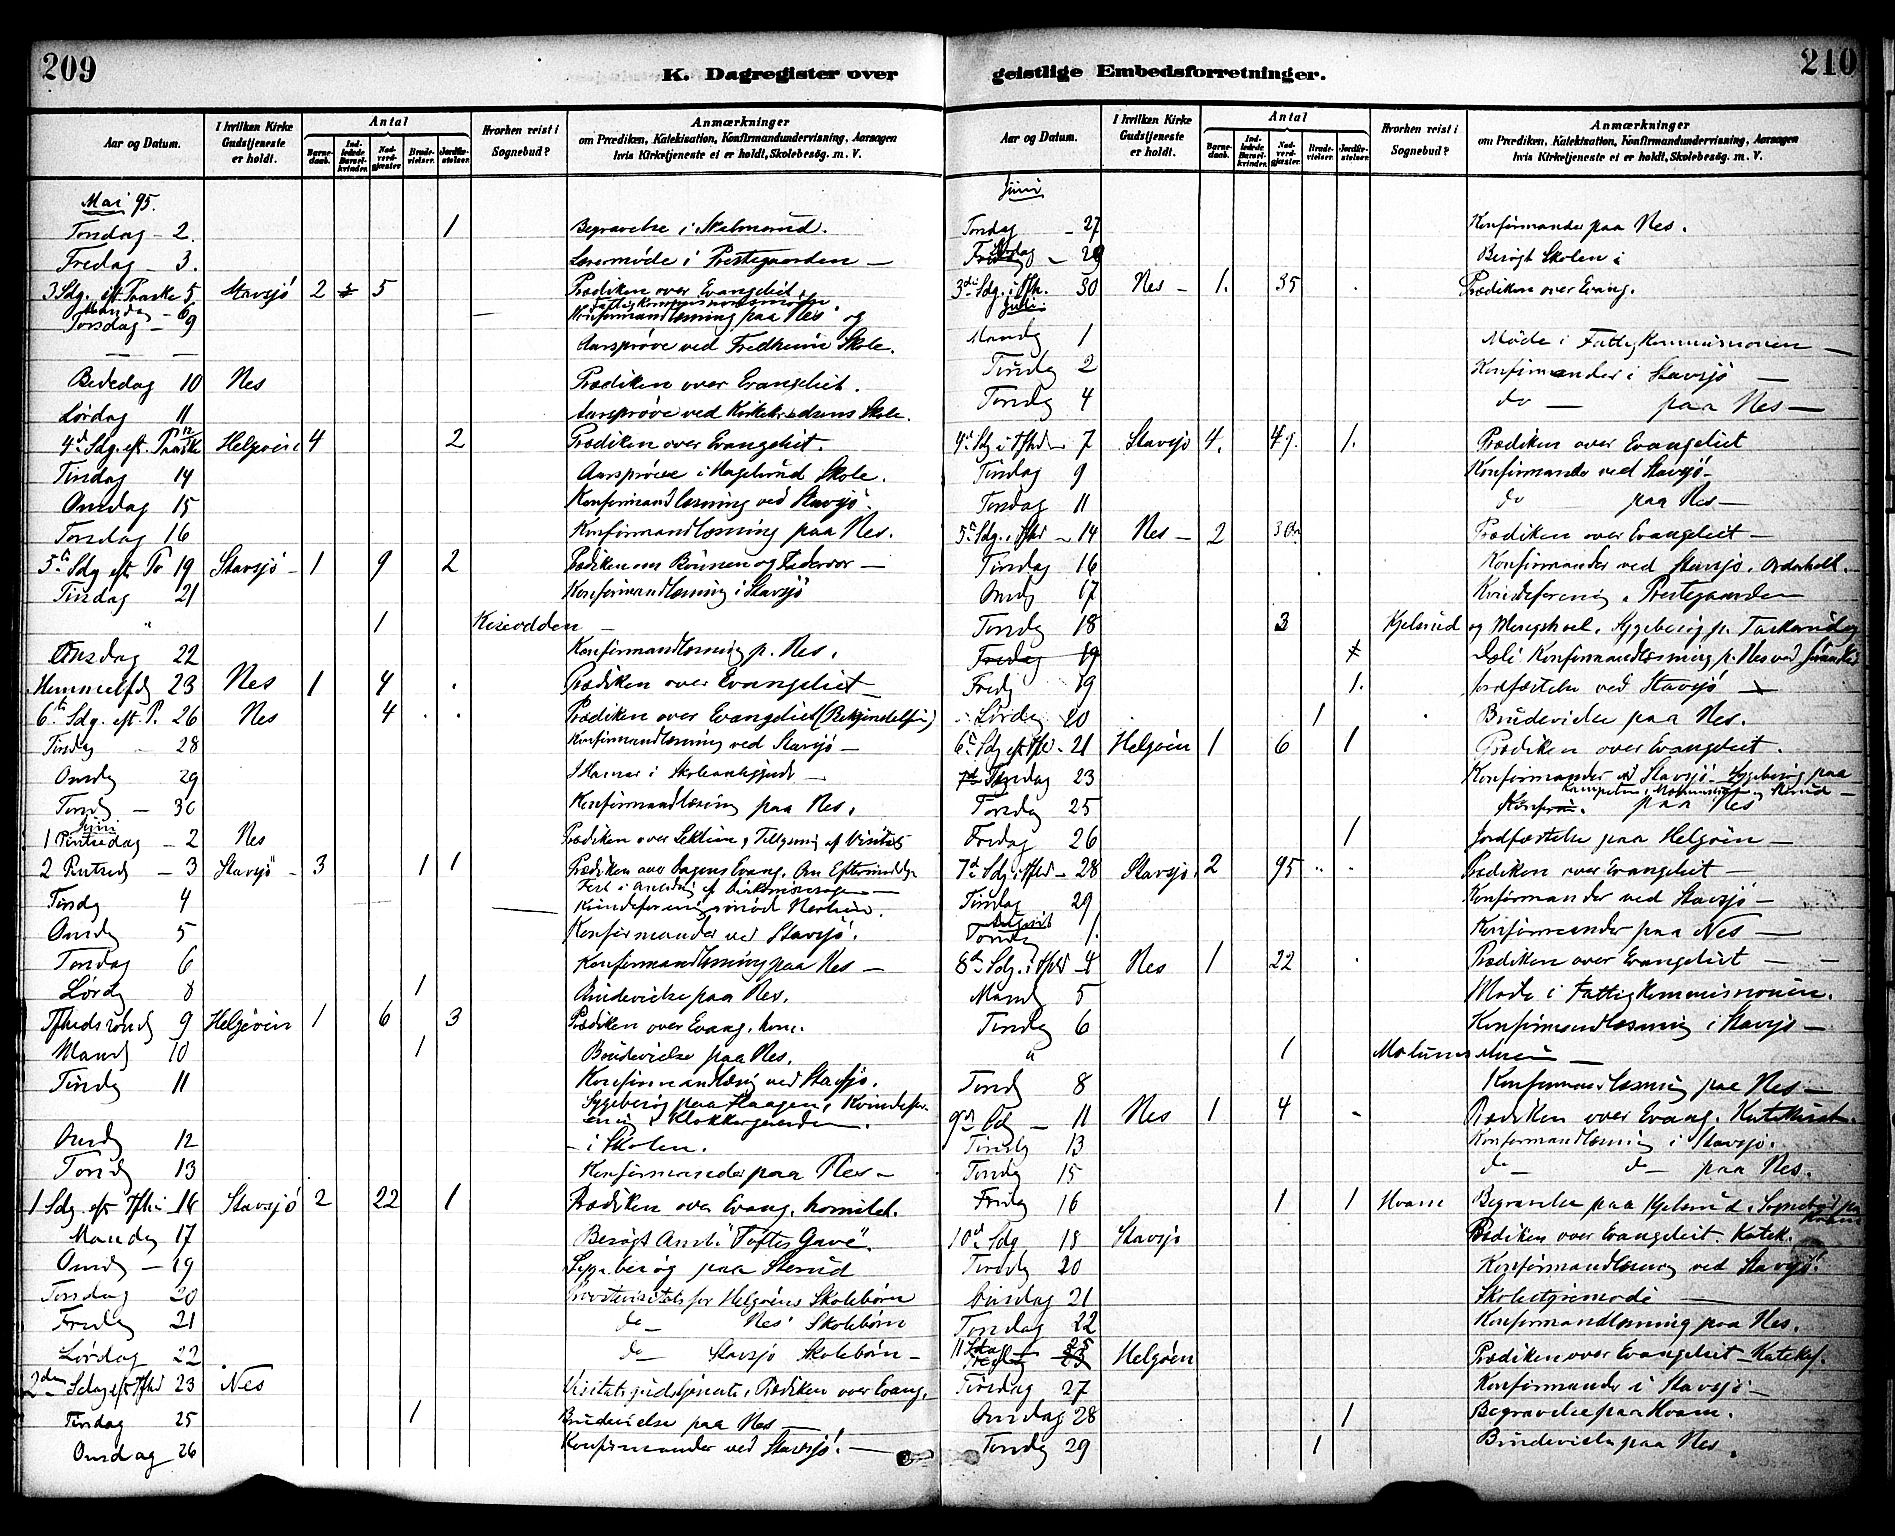 209
K. Dagregister over
Aar og Datum.
I hvilken Kirke Gudstjeneste er holdt.
Antal
Barnedaab.
Indledede Barselkvinder.
Nadverdgjæster.
Brudevielser.
Jordfæstelser.
Hvorhen reist i Sognebud?
Anmærkninger
om Prædiken, Katekisation, Konfirmandundervisning, Aarsagen
hvis Kirketjeneste ei er holdt, Skolebesøg. m. V.
Mai 95.
Torsdag - 2. 1 Begravelse i
Fredag - 3. Lærermøde i Prestegaarden —
3 Sdg. eft. Paaske 5 Stavsjö 2 5 Prædiken over Evangeliet.
Mandag - 6
Torsdag - 9 Konfirmandlæsning paa Nes og
— — Aarsprøve ved Fredheim Skole.
Bededag 10 Nes Prædiken over Evangeliet.
Lørdag 11 Aarsprøve ved Skole.
4d Sdg. eft. Paaske 12 Helgøen 4 2 Prædiken over Evangeliet.
Tirsdag 14 Aarsprøve i Hagelund Skole.
Onsdag 15 Konfirmandlæsning ved Stavsjö.
Torsdag 16 Konfirmandlæsning paa Nes.
5te Sdg eft Pa 19 Stavsjö - 1 9 2 Prædiken om Bönnen og Fadervor —
Tirsdag 21 Konfirmandlæsning i Stavsjö
" 1 Kiseodden —
Onsdag 22 Konfirmandlæsning p. Nes.
Himmelfdg 23 Nes 1 4 . Prædiken over Evangeliet —
6te Sdg. eft. P. 26 Nes 4 . . Prædiken over Evangeliet
Tirsdag - 28 Konfirmandlæsning ved Stavsjö —
Onsdg 29 I Hamar i —
Torsdg - 30 Konfirmandlæsning paa Nes.
Juni
1 Pintsedag - 2 Nes Prædiken over Lektien,
2 Pintsed - 3 Stavsjö - 3 1 1 Prædiken over Dagens Evang. Om Eftermiddg
Fest i Anledng af —
Tirsdg 4 Kvindeforeningsmøde
Onsdg 5 Konfirmander ved Stavsjö.
Torsdag 6 Konfirmandlæsning paa Nes —
Lørdg 8 1 Brudevielse paa Nes.
Tfheds søndg 9 Helgøen 1 6 3 Prædiken over Evang. hom.
Mandg 10 1 Brudevielse paa Nes.
Tirsdg 11 Konfirmandlæsng ved Stavsjø.
Sygebesøg paa Haagen, Kvindefor-
ening i Klokkergaarden.
Onsdg 12 - i Skolen.
Torsdg 13 Konfirmander paa Nes -
1 Sdg. eft Tfh: 16 Stavsjö 2 22 1 Prædiken over Evang. homilet.
Mandag 17 Besøgt Anst. "Toftes Gave".
Onsdg - 19 Sygebesøg paa Sterud
Torsdag 20 for Helgøens Skolebørn
Fredag 21 do — Nes Skolebørn
Lørdag 22 do — Stavsjö Skolebørn —
2den Sdag eft Tfhd 23 Nes Visitatsgudstjeneste, Prædiken over Evang.
Tirsdag 25 1 Brudevielse paa Nes —
Onsdag 26 Konfirmander ved Stavsjö. —
210
geistlige Embedsforretninger.
Aar og Datum.
I hvilken Kirke Gudstjeneste er holdt.
Antal
Barnedaab.
Indledede Barselkvinder.
Nadverdgjæster.
Brudevielser.
Jordfæstelser.
Hvorhen reist i Sognebud?
Anmærkninger
om Prædiken, Katekisation, Konfirmandundervisning, Aarsagen
hvis Kirketjeneste ei er holdt, Skolebesøg. m. V.
Juni
Torsdag - 27 Konfirmander paa Nes.
Besøgt Skolen i
3die Sdg. i Tfh. 30 Nes - 1. 35 . Prædiken over Evang.
Juli
Mandg 1 Møde i Fattigkommissionen —
Tirsdg 2 Konfirmander i Stavsjö —
Torsdg 4 do — paa Nes —
4d Sdg i Tfhd - 7 Stavsjö 4. 49. 1. Prædiken over Evangeliet
Tirsdag 9 Konfirmander ved Stavsjö -
Torsdag 11 do paa Nes —
5te Sdg. i Tfhd - 14 Nes - 2 Prædiken over Evangeliet —
Tirsdag 16 Konfirmander ved Stavsjö.
Onsdg 17 Kvindeforening i Prestegaarden
Torsdg 18 3 Kjelsrud og Sygebesøg p.
Fredag 19 Konfirmandlæsning p. Nes ved
Fredg 19 1. Jordfæstelse ved Stavsjö —
Lørdg 20 1 Brudevielse paa Nes.
6te Sdg eft Tfhd - 21 Helgøen 1 6 1 Prædiken over Evangeliet.
Tirsdag 23 Konfirmander ved Stavsjö - Sygebesøg paa
Torsdag 25 paa Nes
Fredag 26 1 Jordfæstelse paa Helgøen —
7d Sdg i Tfhd - 28 Stavsjö. 2 95 . . Prædiken over Evangeliet —
Tirsdag 29 Konfirmander ved Stavsjö —
August
Torsdg 1. Konfirmander paa Nes —
8de Sdg. i Tfhd - 4 Nes 1 22 . Prædiken over Evangeliet — —
Mandg 5 Møde i Fattigkommissionen.
Tirsdg 6 Konfirmandlæsning i Stavsjø —
" 1 —
Torsdg 8 Konfirmandlæsning paa Nes —
9de Sdg — 11 Nes 1 4 - Prædiken over Evang.
Tirsdg 13 Konfirmandlæsning i Stavsjö.
Torsdg 15 do — do — paa Nes.
Fredg 16 1 1 Hvam Begravelse paa Kjelsrud. Sognebud paa
Hvam
10de Sdg 18 Stavsjö Prædiken over Evangeliet. Katek.
Tirsdg 20 Konfirmandlæsning ved Stavsjö.
Onsdag 21 Skolestyremøde —
Torsdag 22 Konfirmandlæsning paa Nes.
11 Sdag — 25 Helgøen Prædiken over Evangeliet — Katek.
Tirsdag 27 Konfirmander i Stavsjö —
Onsdag 28 1 Begravelse paa Hvam.
Torsdg 29 1 Brudevielse paa Nes.